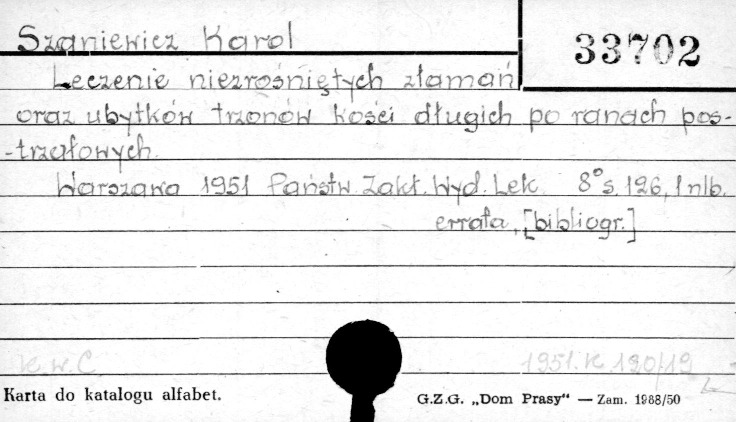 Szaniewicz Karol
33702
Leczenie niezrośniętych złamań
oraz ubytków trzonów kości długich po ranach pos-
-trzałowych.
Warszawa 1951 Państw. Zakł. Wyd. Lek. 8° s. 126, 1 nlb.
errata, [bibliogr.]
K.W.C. 1951. K 190/19
Karta do katalogu alfabet.
G.Z.G. „Dom Prasy“ — Zam. 1988/50